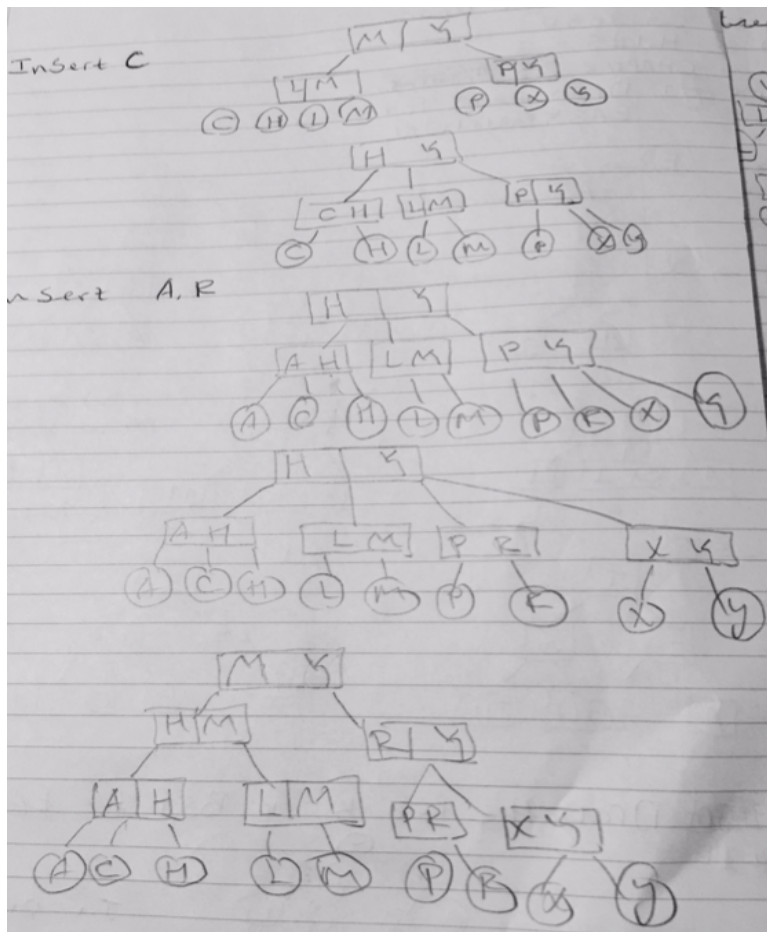 M Y
Insert C
L M P Y
C H L M P X Y
H Y
C H L M P Y
C H L M P X Y
nsert A, R
H Y
A H L M P Y
A C H L M P R X Y
H Y
A H L M P R X Y
A C H L M P R X y
M Y
H M
R Y
A H L M P R X Y
A C H L M P R X y